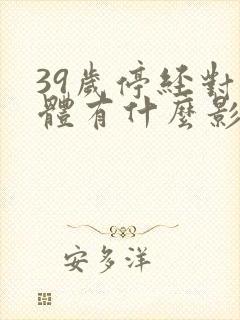 39歲停經對
體有什麼影
安多洋